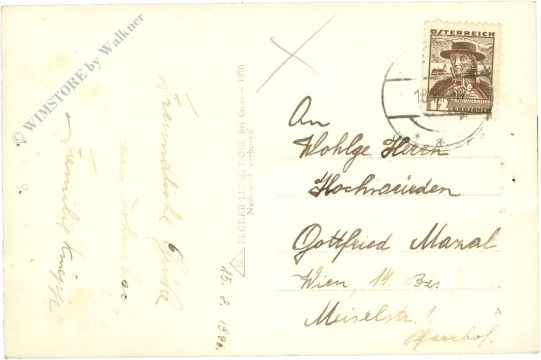 © WIMSTORE by Walkner
Freundliche Grüße
Familie
15. 8. 1936.
Nachdruck verboten!
ÖSTERREICH
12 GROSCHEN
An
Wohlge Herrn
Hochwürden
Gottfried Mazal
Wien, 14. Bez
Meiselstr. 1
Pfarrhof.